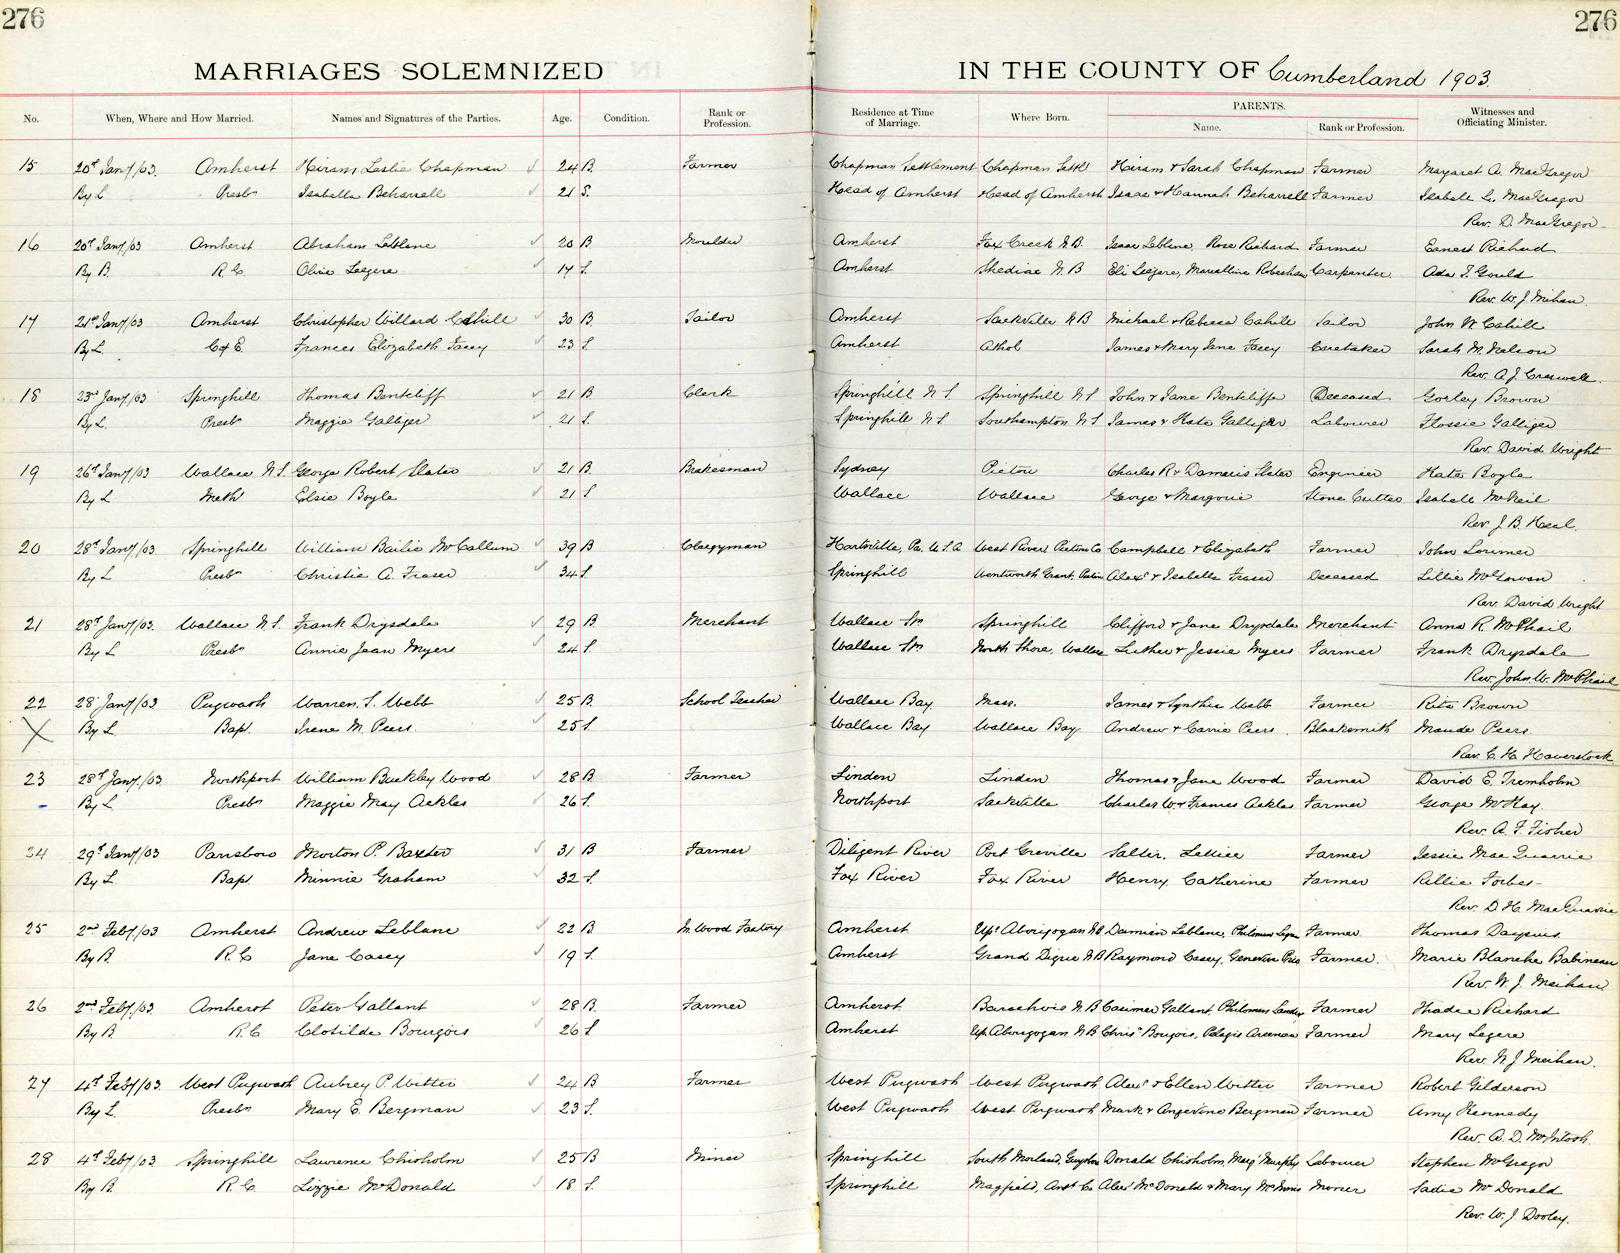 276 276
MARRIAGES SOLEMNIZED IN THE COUNTY OF Cumberland 1903.
No. When, Where and How Married. Names and Signatures of the Parties. Age. Condition. Rank or Profession. Residence at Time of Marriage. Where Born. PARENTS. Name. Rank or Profession. Witnesses and Officiating Minister.
15 20th Jany/03. Amherst Hiram Leslie Chapman 24 B. Farmer Chapman Settlement Chapman Settlt Hiram & Sarah Chapman Farmer Margaret A. MacGregor
By L Presbn Isabella Beharrell 21 S. Head of Amherst Head of Amherst Isaac & Hannah Beharrell Farmer Isabell L. MacGregor
Rev. D. MacGregor
16 20th Jany/03 Amherst Abraham Leblanc 20 B. Moulder Amherst Fox Creek N.B. Isaac Leblanc, Rose Richard Farmer Ernest Richard
By B. R.C Olive Legere 17 S. Amherst Shediac N.B Eli Legere, Carpenter Ada T. Gould
Rev. W. J. Mihan
17 21st Jany/03 Amherst Christopher Willard Cahill 30 B. Tailor Amherst Sackville N B Michael & Rebecca Cahill Sailor John W Cahill
By L. C of E. Frances Elizabeth Facey 23 S. Amherst Athol James & Mary Jane Facey Caretaker Sarah M. Nelson
Rev. A. J. Creswell
18 23rd Jany/03 Springhill Thomas Bentcliff 21 B Clerk Springhill N S Springhill N S John & Jane Bentcliffe Deceased Gorley Brown
By L. Presbn Maggie Galliger 21 S. Springhill N S Southampton N S James & Kate Galliger Labourer Flossie Galliger
Rev. David Wright
19 26th Jany/03 Wallace N.S. George Robert Slater 21 B. Brakesman Sydney Pictou Charles R & Damaris Slater Engineer Kate Boyle
By L Meth Elsie Boyle 21 S Wallace Wallace George & Margorie Stone Cutter Isabell McNeil
Rev. J. B. Heal.
20 28th Jany/03 Springhill William Bailie McCallum 39 B Clergyman Hartsville, Pa. U.S.A West River Pictou Co Campbell & Elizabeth Farmer John Lorimer
By L Presbn Christie A. Fraser 34 S. Springhill Wentworth Grant, Pictou Alexr & Isabella Fraser Deceased Lillie McGowan
Rev. David Wright
21 28th Jany/03. Wallace N.S. Frank Drysdale 29 B Merchant Wallace Stn Springhill Clifford & Jane Drysdale Merchant Anna R. McPhail
By L Presbn Annie Jean Myers 24 S. Wallace Stn North Shore, Wallace Luther & Jessie Myers Farmer Frank Drysdale
Rev. John W. McPhail
22 28 Jany/03 Pugwash Warren S. Webb 25 B. School Teacher Wallace Bay Mass. James & Synthia Webb Farmer Rita Brown
By L Bap. Irene M. Peers 25 S. Wallace Bay Wallace Bay Andrew & Carrie Peers Blacksmith Maude Peers
Rev. C. H. Haverstock
23 28th Jany/03 Northport William Buckley Wood 28 B. Farmer Linden Linden Thomas & Jane Wood Farmer David E. Tremholm
By L Presbn Maggie May Ackles 26 S. Northport Sackville Charles W & Frances Ackles Farmer George McKay
Rev. A. F. Fisher
24 29th Jany/03 Parrsboro Morton P. Baxter 31 B Farmer Diligent River Port Greville Salter, Lettice Farmer Jessie MacQuarrie
By L. Bap. Minnie Graham 32 S. Fox River Fox River Henry, Catherine Farmer Rillie Forbes
Rev. D. H. MacQuarrie
25 2nd Feby/03 Amherst Andrew Leblanc 22 B M. Wood Factory Amherst Upr Aboujogan N B Damien Leblanc, Farmer Thomas
By B. R.C Jane Casey 19 S. Amherst Grand Digue N B Raymond Casey, Farmer. Marie Blanche Babineau
Rev. W. J. Meihan
26 2nd Feby/03. Amherst Peter Gallant 28 B. Farmer Amherst. Barachois N.B Casimer Gallant, Philomen Landry Farmer Thadie Richard
By B. R.C Clotilde Bourgois 26 S Amherst Up. Aboujogan N B Chrisn Bourgois, Farmer Mary Legere
Rev. W J Meihan.
27 4th Feby/03. West Pugwash Aubrey P. Witter 24 B Farmer West Pugwash West Pugwash Alexr & Ellen Witter Farmer Robert Gilderson
By L. Presbn Mary E. Bergman 23 S. West Pugwash West Pugwash Mark & Angevine Bergman Farmer Amy Kennedy
Rev. A. D. McIntosh
28 4th Feby/03 Springhill Lawrence Chisholm 25 B Miner Springhill South Donald Chisholm, Margt Murphy Labourer Stephen McGregor
By B. R.C. Lizzie McDonald 18 S. Springhill Mayfield, Antt Co Alexr McDonald & Mary McInnis Miner Sadie McDonald
Rev. W. J. Dooley.